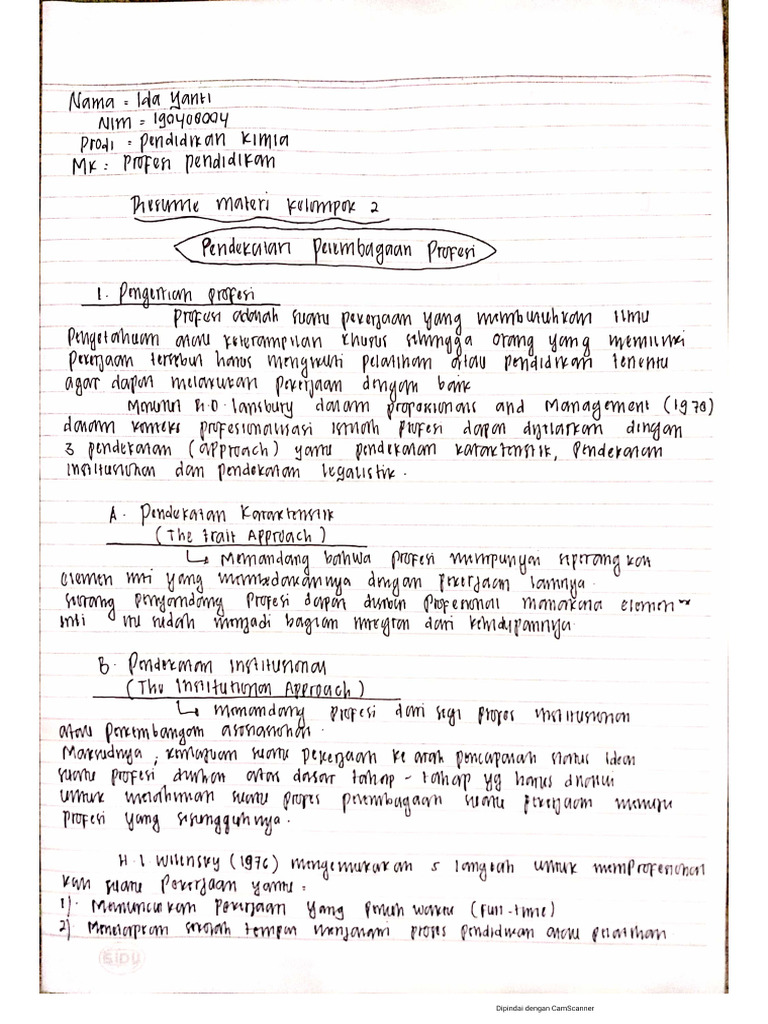 Nama = Ida Yanti
NIM = 190408004
Prodi = Pendidikan Kimia
MK = Profesi pendidikan
Resume materi kelompok 2
Pendekatan Pelembagaan Profesi
1. Pengertian profesi
Profesi adalah suatu pekerjaan yang membutuhkan Ilmu
Pengetahuan atau keterampilan khusus sehingga orang yang memiliki
Pekerjaan tersebut harus mengikuti pelatihan atau pendidikan tertentu
agar dapat melakukan pekerjaan dengan baik
Menurut R.D. Lansbury dalam and Management (1978)
dalam konteks profesionalisasi istilah profesi dapat dijelaskan dengan
3 pendekatan (approach) yaitu pendekatan karakteristik, Pendekatan
Institusional dan pendekatan legalistik.
A. Pendekatan Karakteristik
(The Trait Approach)
↳ Memandang bahwa profesi mempunyai seperangkat
elemen inti yang membedakannya dengan pekerjaan lainnya.
Seorang penyandang Profesi dapat disebut Profesional manakala elemen"
inti itu sudah menjadi bagian integral dari kehidupannya.
B. Pendekatan Institusional
(The Institutional Approach)
↳ memandang profesi dari segi proses institusional
atau Perkembangan asosiasional.
Maksudnya, kemajuan suatu pekerjaan ke arah pencapaian status ideal
suatu profesi dilihat atas dasar tahap - tahap yg harus dilalui
untuk melahirkan suatu proses pelembagaan suatu pekerjaan menuju
profesi yang sesungguhnya.
H.L Wilensky (1976) mengemukakan 5 langkah untuk memprofesional
kan suatu pekerjaan yaitu =
1). Memunculkan Pekerjaan yang Penuh waktu (Full-time)
2). Menetapkan sekolah tempat menjalani proses pendidikan atau pelatihan
SIDU
Dipindai dengan CamScanner